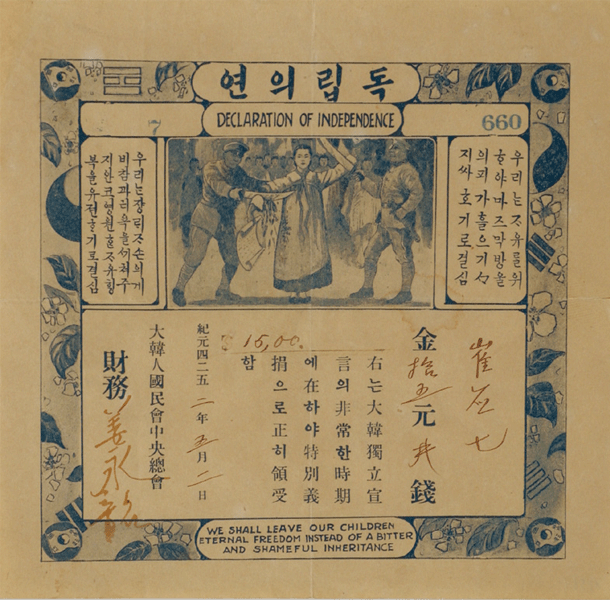 독립의연
DECLARATION OF INDEPENDENCE
7
660
우리는 ᄌᆞ유를 위
ᄒᆞ야 마즈막 방울
의 피가 흘으기
지 싸호기로 결심
우리는 장릭 ᄌᆞ손의게
비참과 치욕을 주
지안코 영원ᄒᆞᆫ ᄌᆞ유힝
복을 유전ᄒᆞ기로 결심
崔 七
金拾五元 錢
$15,00.
右는大韓獨立宣
言의非常한時期
에在하야特別義
捐으로正히領受
함
紀元四二五二年五月二日
大韓人國民會中央總會
財務 姜永
WE SHALL LEAVE OUR CHILDREN
ETERNAL FREEDOM INSTEAD OF A BITTER
AND SHAMEFUL INHERITANCE